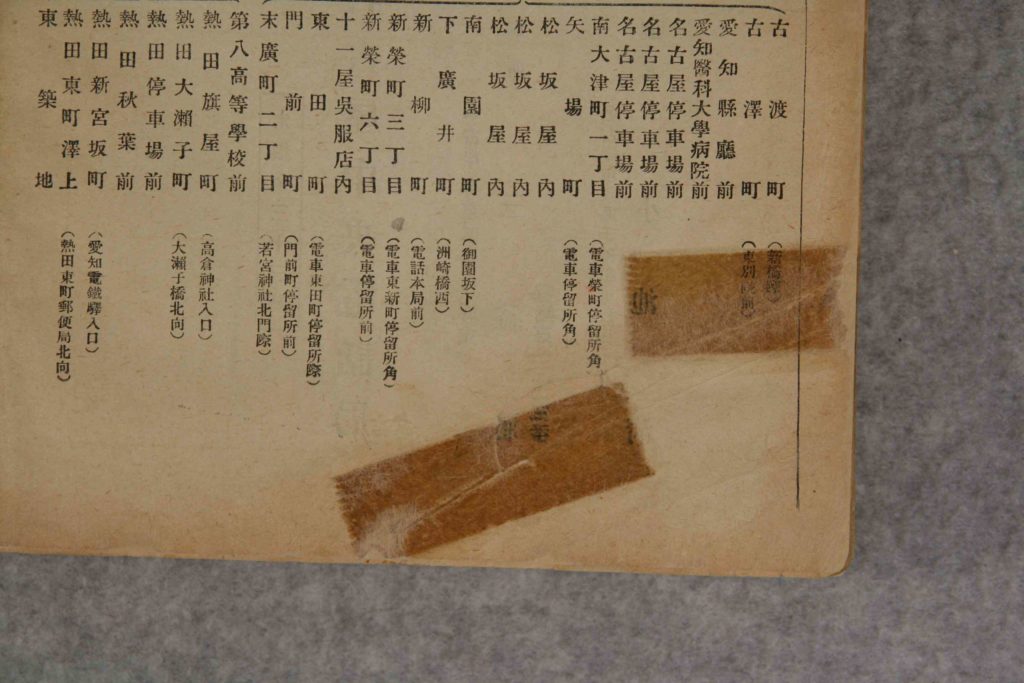 古渡町（新橋際）
古澤町（東別院前）
愛知縣廳前
愛知醫科大學病院前
名古屋停車場前
名古屋停車場前
名古屋停車場前
南大津町一丁目（電車榮町停留所角）
矢場町（電車停留所角）
松坂屋內
松坂屋內
松坂屋內
南園町（御園坂下）
下廣井町（洲崎橋西）
新柳町（電話本局前）
新榮町三丁目（電車東新町停留所角）
新榮町六丁目（電車停留所前）
十一屋吳服店內
東田町（電車東田町停留所際）
門前町（門前町停留所前）
末廣町二丁目（若宮神社北門際）
第八高等學校前
熱田旗屋町（高倉神社入口）
熱田大瀨子町（大瀨子橋北向）
熱田停車場前
熱田秋葉前
熱田新宮坂町（愛知電鐵驛入口）
熱田東町澤上（熱田東町郵便局北向）
東築地